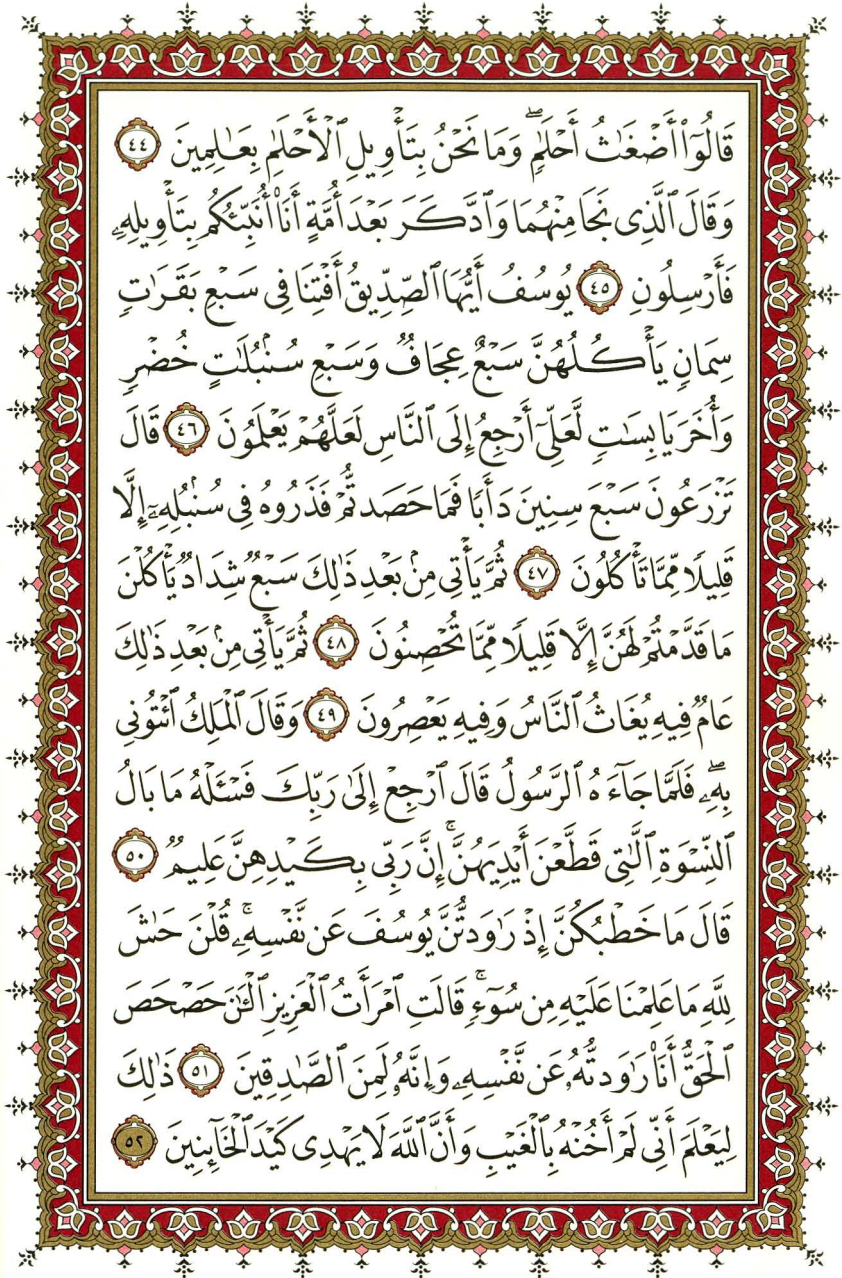 قَالُوٓا۟ أَضْغَٰثُ أَحْلَٰمٍۖ وَمَا نَحْنُ بِتَأْوِيلِ ٱلْأَحْلَٰمِ بِعَٰلِمِينَ ٤٤
وَقَالَ ٱلَّذِى نَجَا مِنْهُمَا وَٱدَّكَرَ بَعْدَ أُمَّةٍ أَنَا۠ أُنَبِّئُكُم بِتَأْوِيلِهِۦ
فَأَرْسِلُونِ ٤٥ يُوسُفُ أَيُّهَا ٱلصِّدِّيقُ أَفْتِنَا فِى سَبْعِ بَقَرَٰتٍ
سِمَانٍ يَأْكُلُهُنَّ سَبْعٌ عِجَافٌ وَسَبْعِ سُنۢبُلَٰتٍ خُضْرٍ
وَأُخَرَ يَابِسَٰتٍ لَّعَلِّىٓ أَرْجِعُ إِلَى ٱلنَّاسِ لَعَلَّهُمْ يَعْلَمُونَ ٤٦ قَالَ
تَزْرَعُونَ سَبْعَ سِنِينَ دَأَبًا فَمَا حَصَدتُّمْ فَذَرُوهُ فِى سُنۢبُلِهِۦٓ إِلَّا
قَلِيلًا مِّمَّا تَأْكُلُونَ ٤٧ ثُمَّ يَأْتِى مِنۢ بَعْدِ ذَٰلِكَ سَبْعٌ شِدَادٌ يَأْكُلْنَ
مَا قَدَّمْتُمْ لَهُنَّ إِلَّا قَلِيلًا مِّمَّا تُحْصِنُونَ ٤٨ ثُمَّ يَأْتِى مِنۢ بَعْدِ ذَٰلِكَ
عَامٌ فِيهِ يُغَاثُ ٱلنَّاسُ وَفِيهِ يَعْصِرُونَ ٤٩ وَقَالَ ٱلْمَلِكُ ٱئْتُونِى
بِهِۦۖ فَلَمَّا جَآءَهُ ٱلرَّسُولُ قَالَ ٱرْجِعْ إِلَىٰ رَبِّكَ فَسْـَٔلْهُ مَا بَالُ
ٱلنِّسْوَةِ ٱلَّٰتِى قَطَّعْنَ أَيْدِيَهُنَّۚ إِنَّ رَبِّى بِكَيْدِهِنَّ عَلِيمٌ ٥٠
قَالَ مَا خَطْبُكُنَّ إِذْ رَٰوَدتُّنَّ يُوسُفَ عَن نَّفْسِهِۦۚ قُلْنَ حَٰشَ
لِلَّهِ مَا عَلِمْنَا عَلَيْهِ مِن سُوٓءٍۚ قَالَتِ ٱمْرَأَتُ ٱلْعَزِيزِ ٱلْـَٰٔنَ حَصْحَصَ
ٱلْحَقُّ أَنَا۠ رَٰوَدتُّهُۥ عَن نَّفْسِهِۦ وَإِنَّهُۥ لَمِنَ ٱلصَّٰدِقِينَ ٥١ ذَٰلِكَ
لِيَعْلَمَ أَنِّى لَمْ أَخُنْهُ بِٱلْغَيْبِ وَأَنَّ ٱللَّهَ لَا يَهْدِى كَيْدَ ٱلْخَآئِنِينَ ٥٢